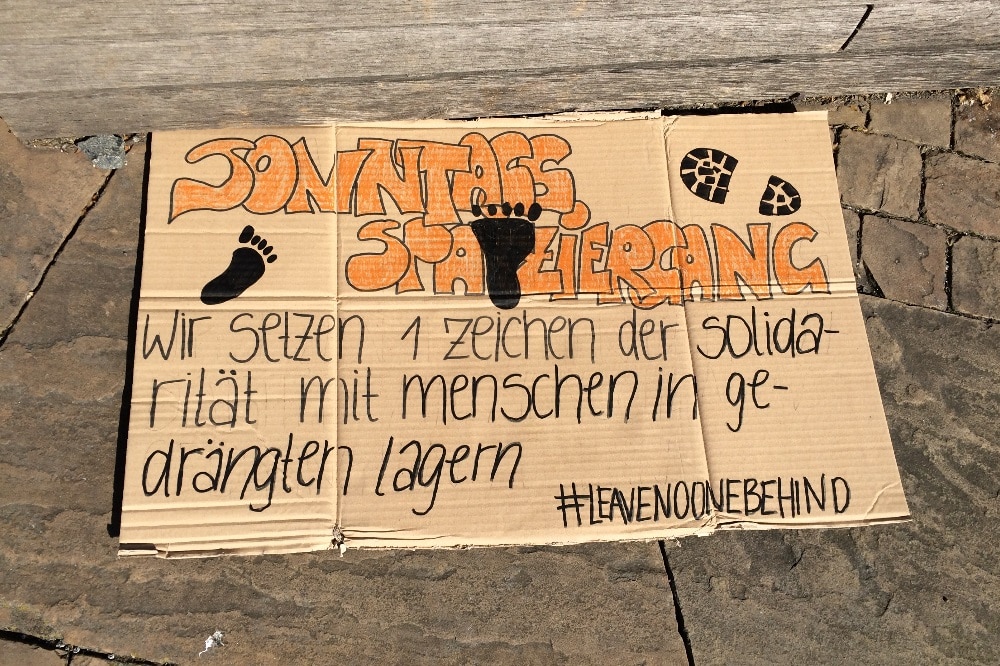 SONNTAGS,
SPAZIERGANG
wir setzen 1 zeichen der solida-
rität mit menschen in ge-
drängten lagern
#LEAVENOONEBEHIND